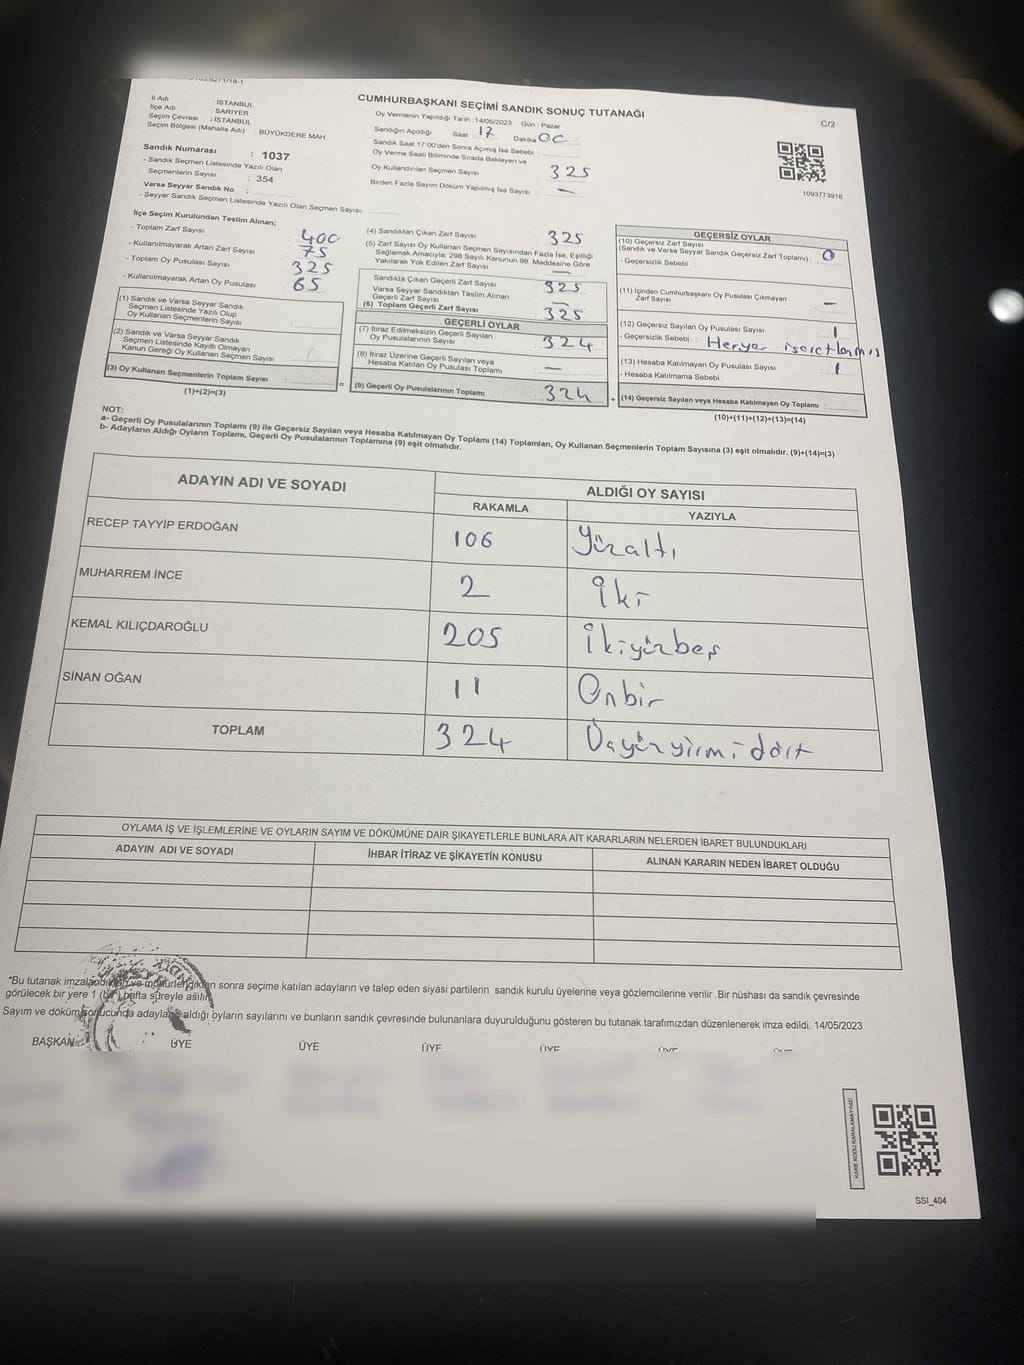 CUMHURBAŞKANI SEÇİMİ SANDIK SONUÇ TUTANAĞI
C/2
İl Adı : İSTANBUL
İlçe Adı : SARIYER
Seçim Çevresi : İSTANBUL
Seçim Bölgesi (Mahalle Adı) : BÜYÜKDERE MAH
Sandık Numarası : 1037
- Sandık Seçmen Listesinde Yazılı Olan
Seçmenlerin Sayısı : 354
Varsa Seyyar Sandık No :
- Seyyar Sandık Seçmen Listesinde Yazılı Olan Seçmen Sayısı
Oy Vermenin Yapıldığı Tarih : 14/05/2023 Gün : Pazar
Sandığın Açıldığı Saat 17 Dakika 00
Sandık Saat 17.00'den Sonra Açılmış İse Sebebi :
Oy Verme Saati Bitiminde Sırada Bekleyen ve
Oy Kullandırılan Seçmen Sayısı 325
Birden Fazla Sayım Döküm Yapılmış İse Sayısı —
1093773918
İlçe Seçim Kurulundan Teslim Alınan;
- Toplam Zarf Sayısı 400
- Kullanılmayarak Artan Zarf Sayısı 75
- Toplam Oy Pusulası Sayısı 325
- Kullanılmayarak Artan Oy Pusulası 65
(1) Sandık ve Varsa Seyyar Sandık
Seçmen Listesinde Yazılı Olup
Oy Kullanan Seçmenlerin Sayısı
(2) Sandık ve Varsa Seyyar Sandık
Seçmen Listesinde Kayıtlı Olmayan
Kanun Gereği Oy Kullanan Seçmen Sayısı
(3) Oy Kullanan Seçmenlerin Toplam Sayısı
(1)+(2)=(3)
(4) Sandıktan Çıkan Zarf Sayısı 325
(5) Zarf Sayısı Oy Kullanan Seçmen Sayısından Fazla İse, Eşitliği
Sağlamak Amacıyla, 298 Sayılı Kanunun 98. Maddesine Göre
Yakılarak Yok Edilen Zarf Sayısı —
Sandıkta Çıkan Geçerli Zarf Sayısı 325
Varsa Seyyar Sandıktan Teslim Alınan
Geçerli Zarf Sayısı —
(6) Toplam Geçerli Zarf Sayısı 325
GEÇERLİ OYLAR
(7) İtiraz Edilmeksizin Geçerli Sayılan
Oy Pusulalarının Sayısı 324
(8) İtiraz Üzerine Geçerli Sayılan veya
Hesaba Katılan Oy Pusulası Toplamı —
= (9) Geçerli Oy Pusulalarının Toplamı 324
GEÇERSİZ OYLAR
(10) Geçersiz Zarf Sayısı
(Sandık ve Varsa Seyyar Sandık Geçersiz Zarf Toplamı) : 0
- Geçersizlik Sebebi :
(11) İçinden Cumhurbaşkanı Oy Pusulası Çıkmayan
Zarf Sayısı —
(12) Geçersiz Sayılan Oy Pusulası Sayısı 1
- Geçersizlik Sebebi : Heryer işaretlenmiş
(13) Hesaba Katılmayan Oy Pusulası Sayısı 1
- Hesaba Katılmama Sebebi :
+ (14) Geçersiz Sayılan veya Hesaba Katılmayan Oy Toplamı
(10)+(11)+(12)+(13)=(14)
NOT:
a- Geçerli Oy Pusulalarının Toplamı (9) ile Geçersiz Sayılan veya Hesaba Katılmayan Oy Toplamı (14) Toplamları, Oy Kullanan Seçmenlerin Toplam Sayısına (3) eşit olmalıdır. (9)+(14)=(3)
b- Adayların Aldığı Oyların Toplamı, Geçerli Oy Pusulalarının Toplamına (9) eşit olmalıdır.
ADAYIN ADI VE SOYADI
ALDIĞI OY SAYISI
RAKAMLA YAZIYLA
RECEP TAYYİP ERDOĞAN 106 Yüzaltı
MUHARREM İNCE 2 İki
KEMAL KILIÇDAROĞLU 205 İkiyüzbeş
SİNAN OĞAN 11 Onbir
TOPLAM 324 Üçyüzyirmidört
OYLAMA İŞ VE İŞLEMLERİNE VE OYLARIN SAYIM VE DÖKÜMÜNE DAİR ŞİKAYETLERLE BUNLARA AİT KARARLARIN NELERDEN İBARET BULUNDUKLARI
ADAYIN ADI VE SOYADI İHBAR İTİRAZ VE ŞİKAYETİN KONUSU ALINAN KARARIN NEDEN İBARET OLDUĞU
*Bu tutanak imzalandıktan ve mühürlendikten sonra seçime katılan adayların ve talep eden siyasi partilerin sandık kurulu üyelerine veya gözlemcilerine verilir .Bir nüshası da sandık çevresinde
görülecek bir yere 1 (bir) hafta süreyle asılır.
Sayım ve döküm sonucunda adayların aldığı oyların sayılarını ve bunların sandık çevresinde bulunanlara duyurulduğunu gösteren bu tutanak tarafımızdan düzenlenerek imza edildi. 14/05/2023
BAŞKAN ÜYE ÜYE ÜYE ÜYE
KARE KODU KARALAMAYINIZ!
SSI_404